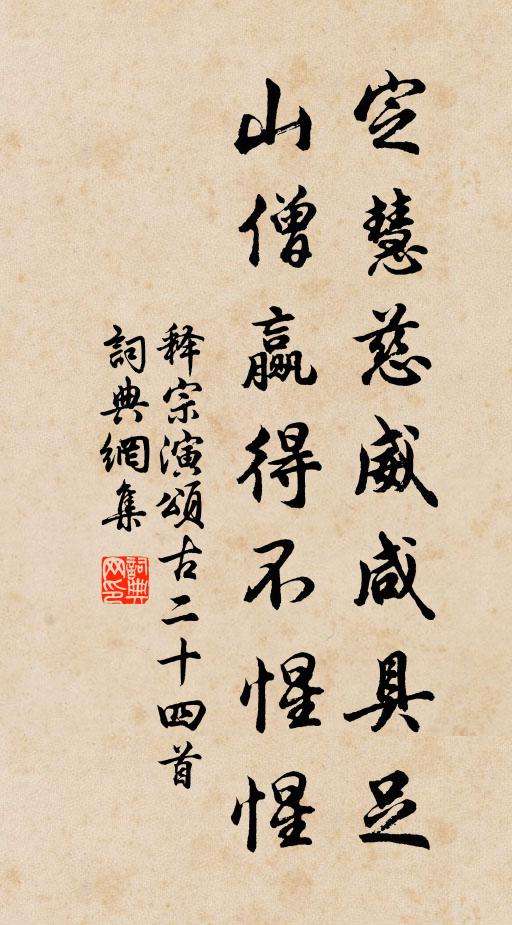 定慧慈威咸具足
山僧贏得不惺惺
释宗演頌古二十四首
詞典網集
詞典网印